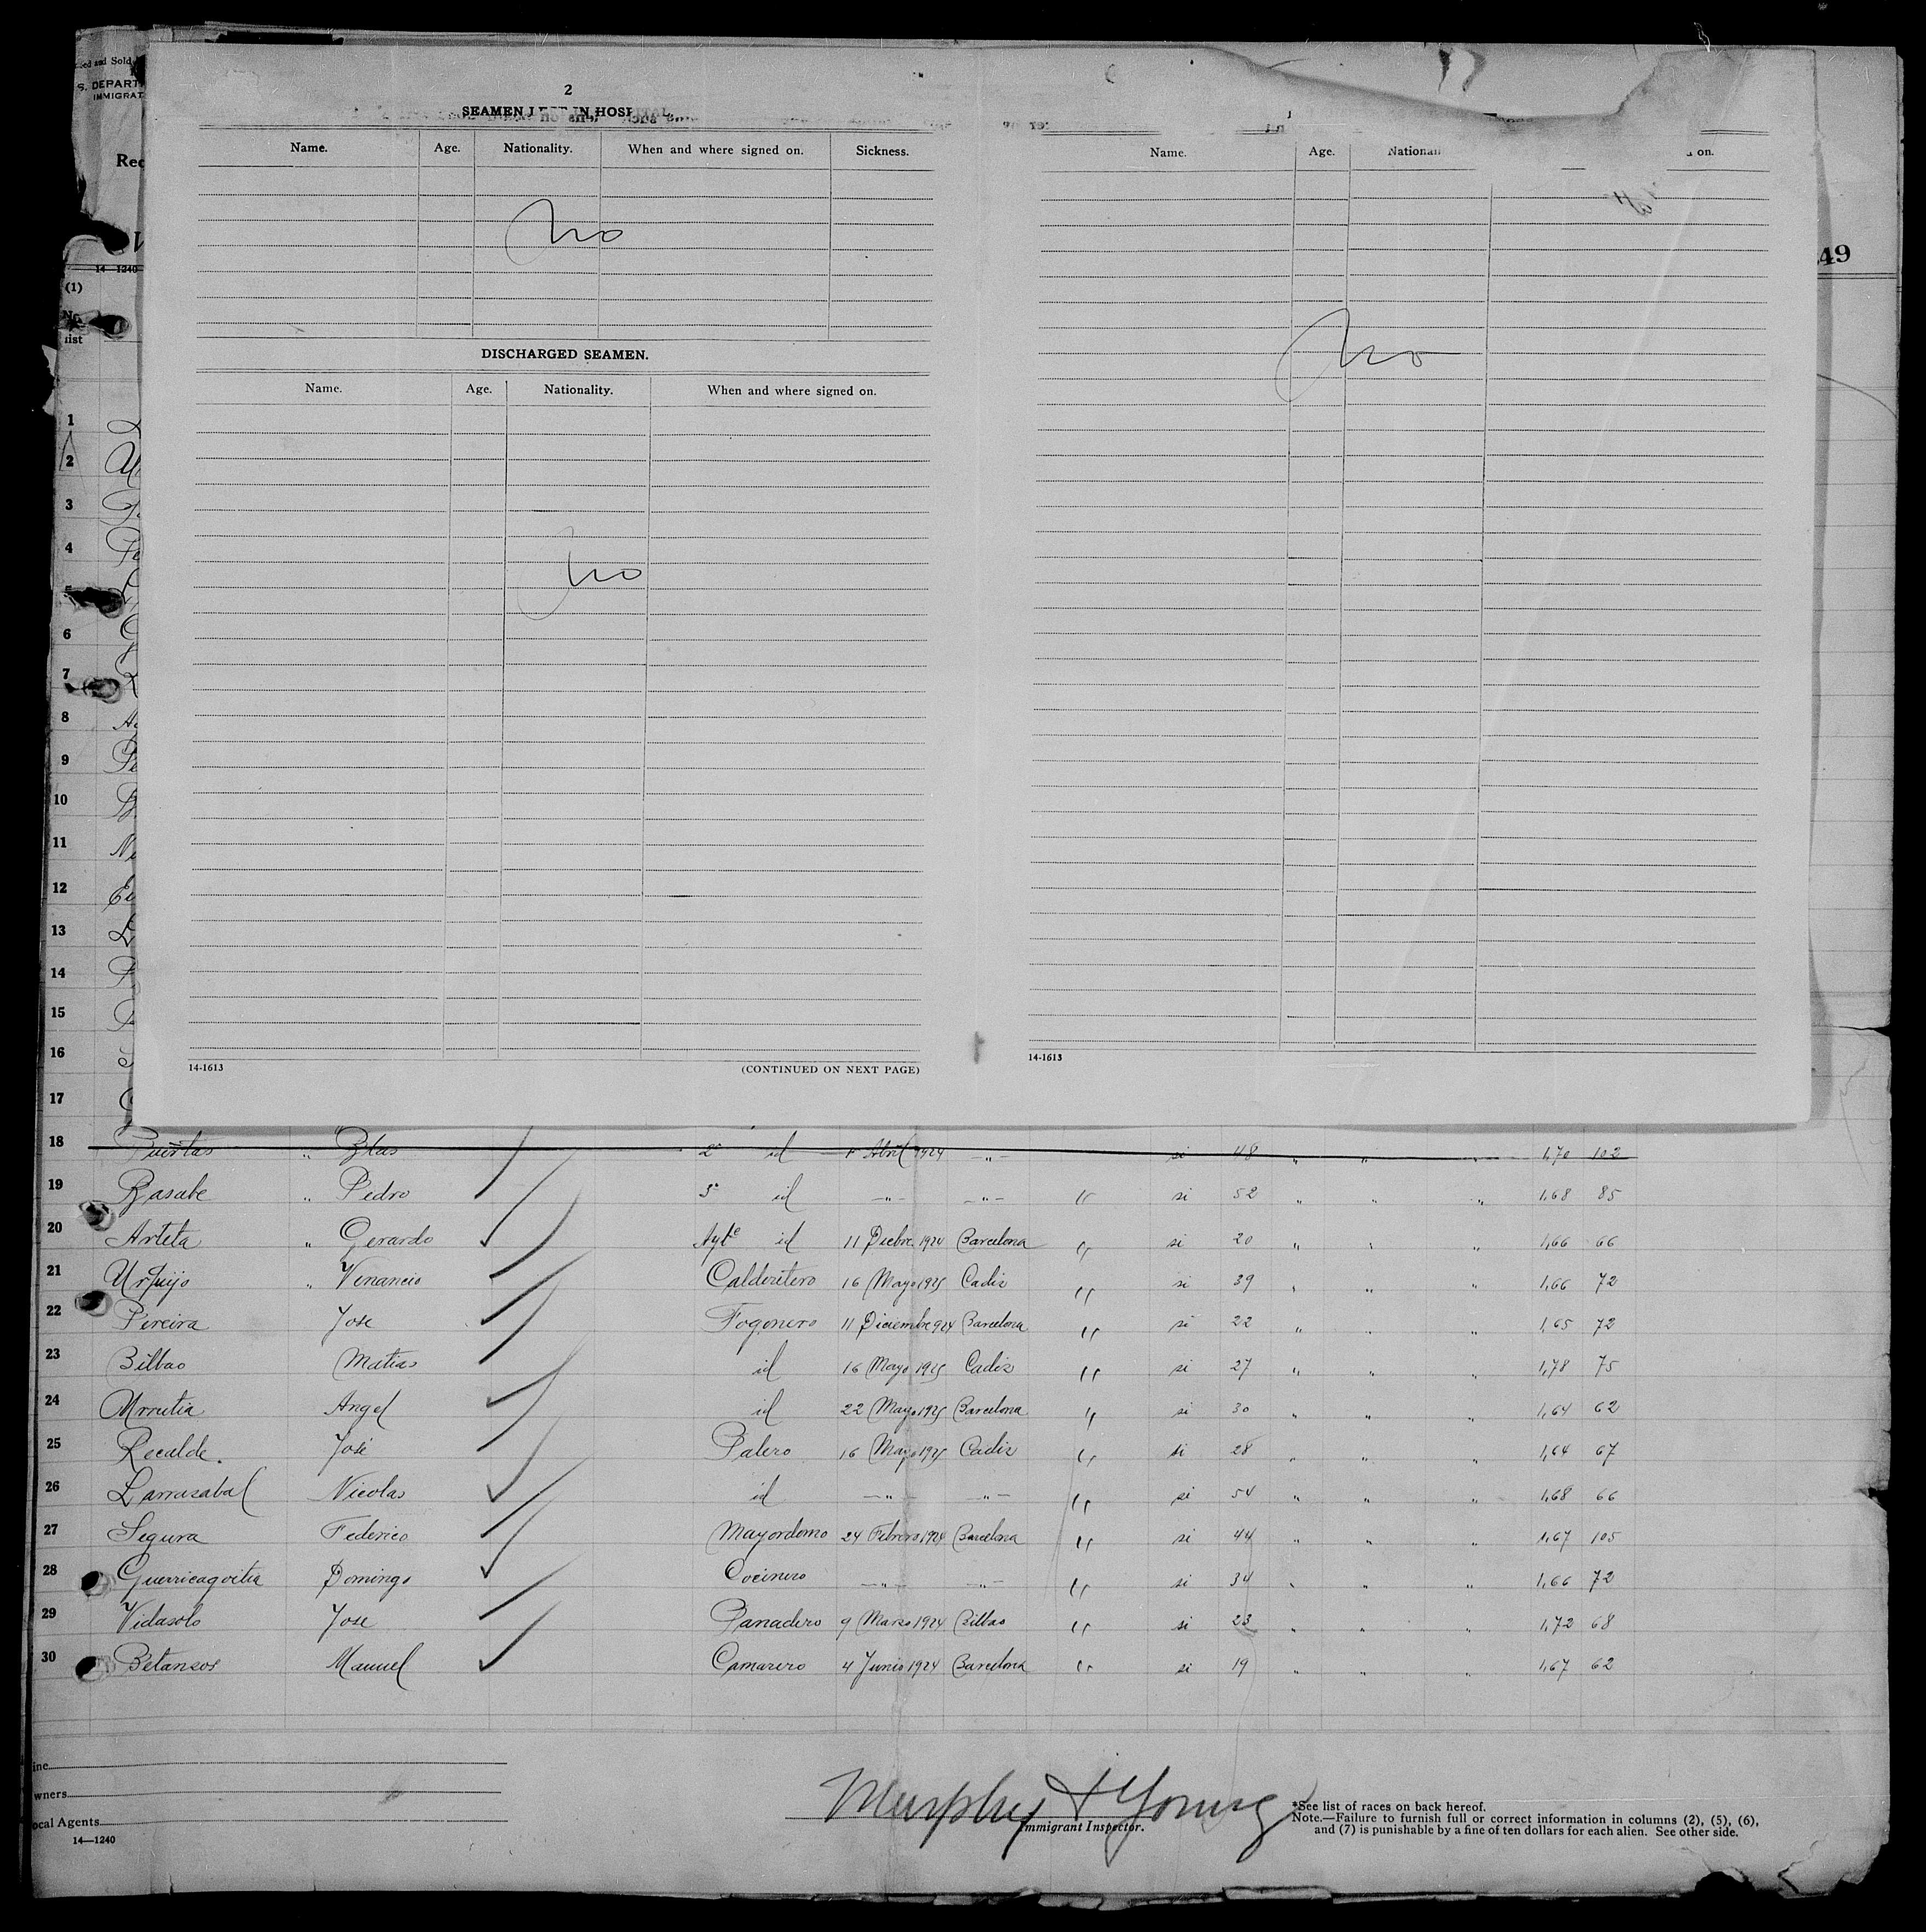 2
SEAMEN LEFT IN HOSPITAL
Name. Age. Nationality. When and where signed on. Sickness.
No
DISCHARGED SEAMEN.
Name. Age. Nationality. When and where signed on.
No
14-1613 (CONTINUED ON NEXT PAGE)
Name. Age. on.
No
14-1613
and Sold
S. DEPART
IMMIGRAT
49
14-1240
(1)
No.
1
2
3
4
5
6
7
8
9
10
11
12
13
14
15
16
17
18 Puertas " Blas 2º id 1º Abril 1924 -"- si 48 " " " 1,70 102
19 Basabe " Pedro 3º id -"- -"- " si 52 " " " 1,68 85
20 Arteta " Gerardo Ayte id 11 Dicbre 1924 Barcelona " si 20 " " " 1,66 66
21 Urquijo " Venancio Calderetero 16 Mayo 1925 Cadiz " si 39 " " " 1,66 72
22 Pereira Jose Fogonero 11 Diciembre 924 Barcelona " si 22 " " " 1,65 72
23 Bilbao Matias id 16 Mayo 1925 Cadiz " si 27 " " " 1,78 75
24 Urrutia Angel id 22 Mayo 1925 Barcelona " si 30 " " " 1,64 62
25 Recalde. José Palero 16 Mayo 1925 Cadiz " si 28 " " " 1,64 67
26 Larrazabal Nicolas id -"- -"- " si 54 " " " 1,68 66
27 Segura Federico Mayordomo 24 Febrero 1924 Barcelona " si 44 " " " 1,67 105
28 Guerricagoitia Domingo Cocinero -"- -"- " si 34 " " " 1,66 72
29 Vidasolo Jose Panadero 9 Marzo 1924 Bilbao " si 23 " " " 1,72 68
30 Betanzos Manuel Camarero 4 Junio 1924 Barcelona " si 19 " " " 1,67 62
Murphy & Young
Immigrant Inspector.
ocal Agents
14—1240
*See list of races on back hereof.
Note.—Failure to furnish full or correct information in columns (2), (5), (6),
and (7) is punishable by a fine of ten dollars for each alien. See other side.